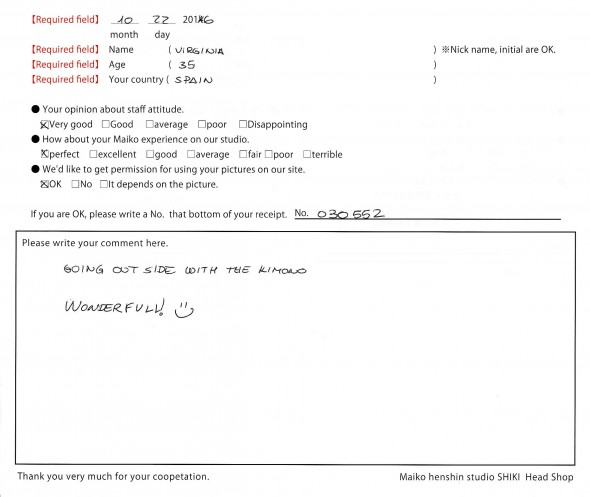 【Required field】 10 22 2016
month day
【Required field】 Name ( VIRGINIA ) ※Nick name, initial are OK.
【Required field】 Age ( 35 )
【Required field】 Your country ( SPAIN )
● Your opinion about staff attitude.
☒Very good □Good □average □poor □Disappointing
● How about your Maiko experience on our studio.
☒perfect □excellent □good □average □fair □poor □terrible
● We'd like to get permission for using your pictures on our site.
☒OK □No □It depends on the picture.
If you are OK, please write a No. that bottom of your receipt. No. 030552
Please write your comment here.
GOING OUT SIDE WITH THE KIMONO
WONDERFULL!
Thank you very much for your coopetation. Maiko henshin studio SHIKI Head Shop